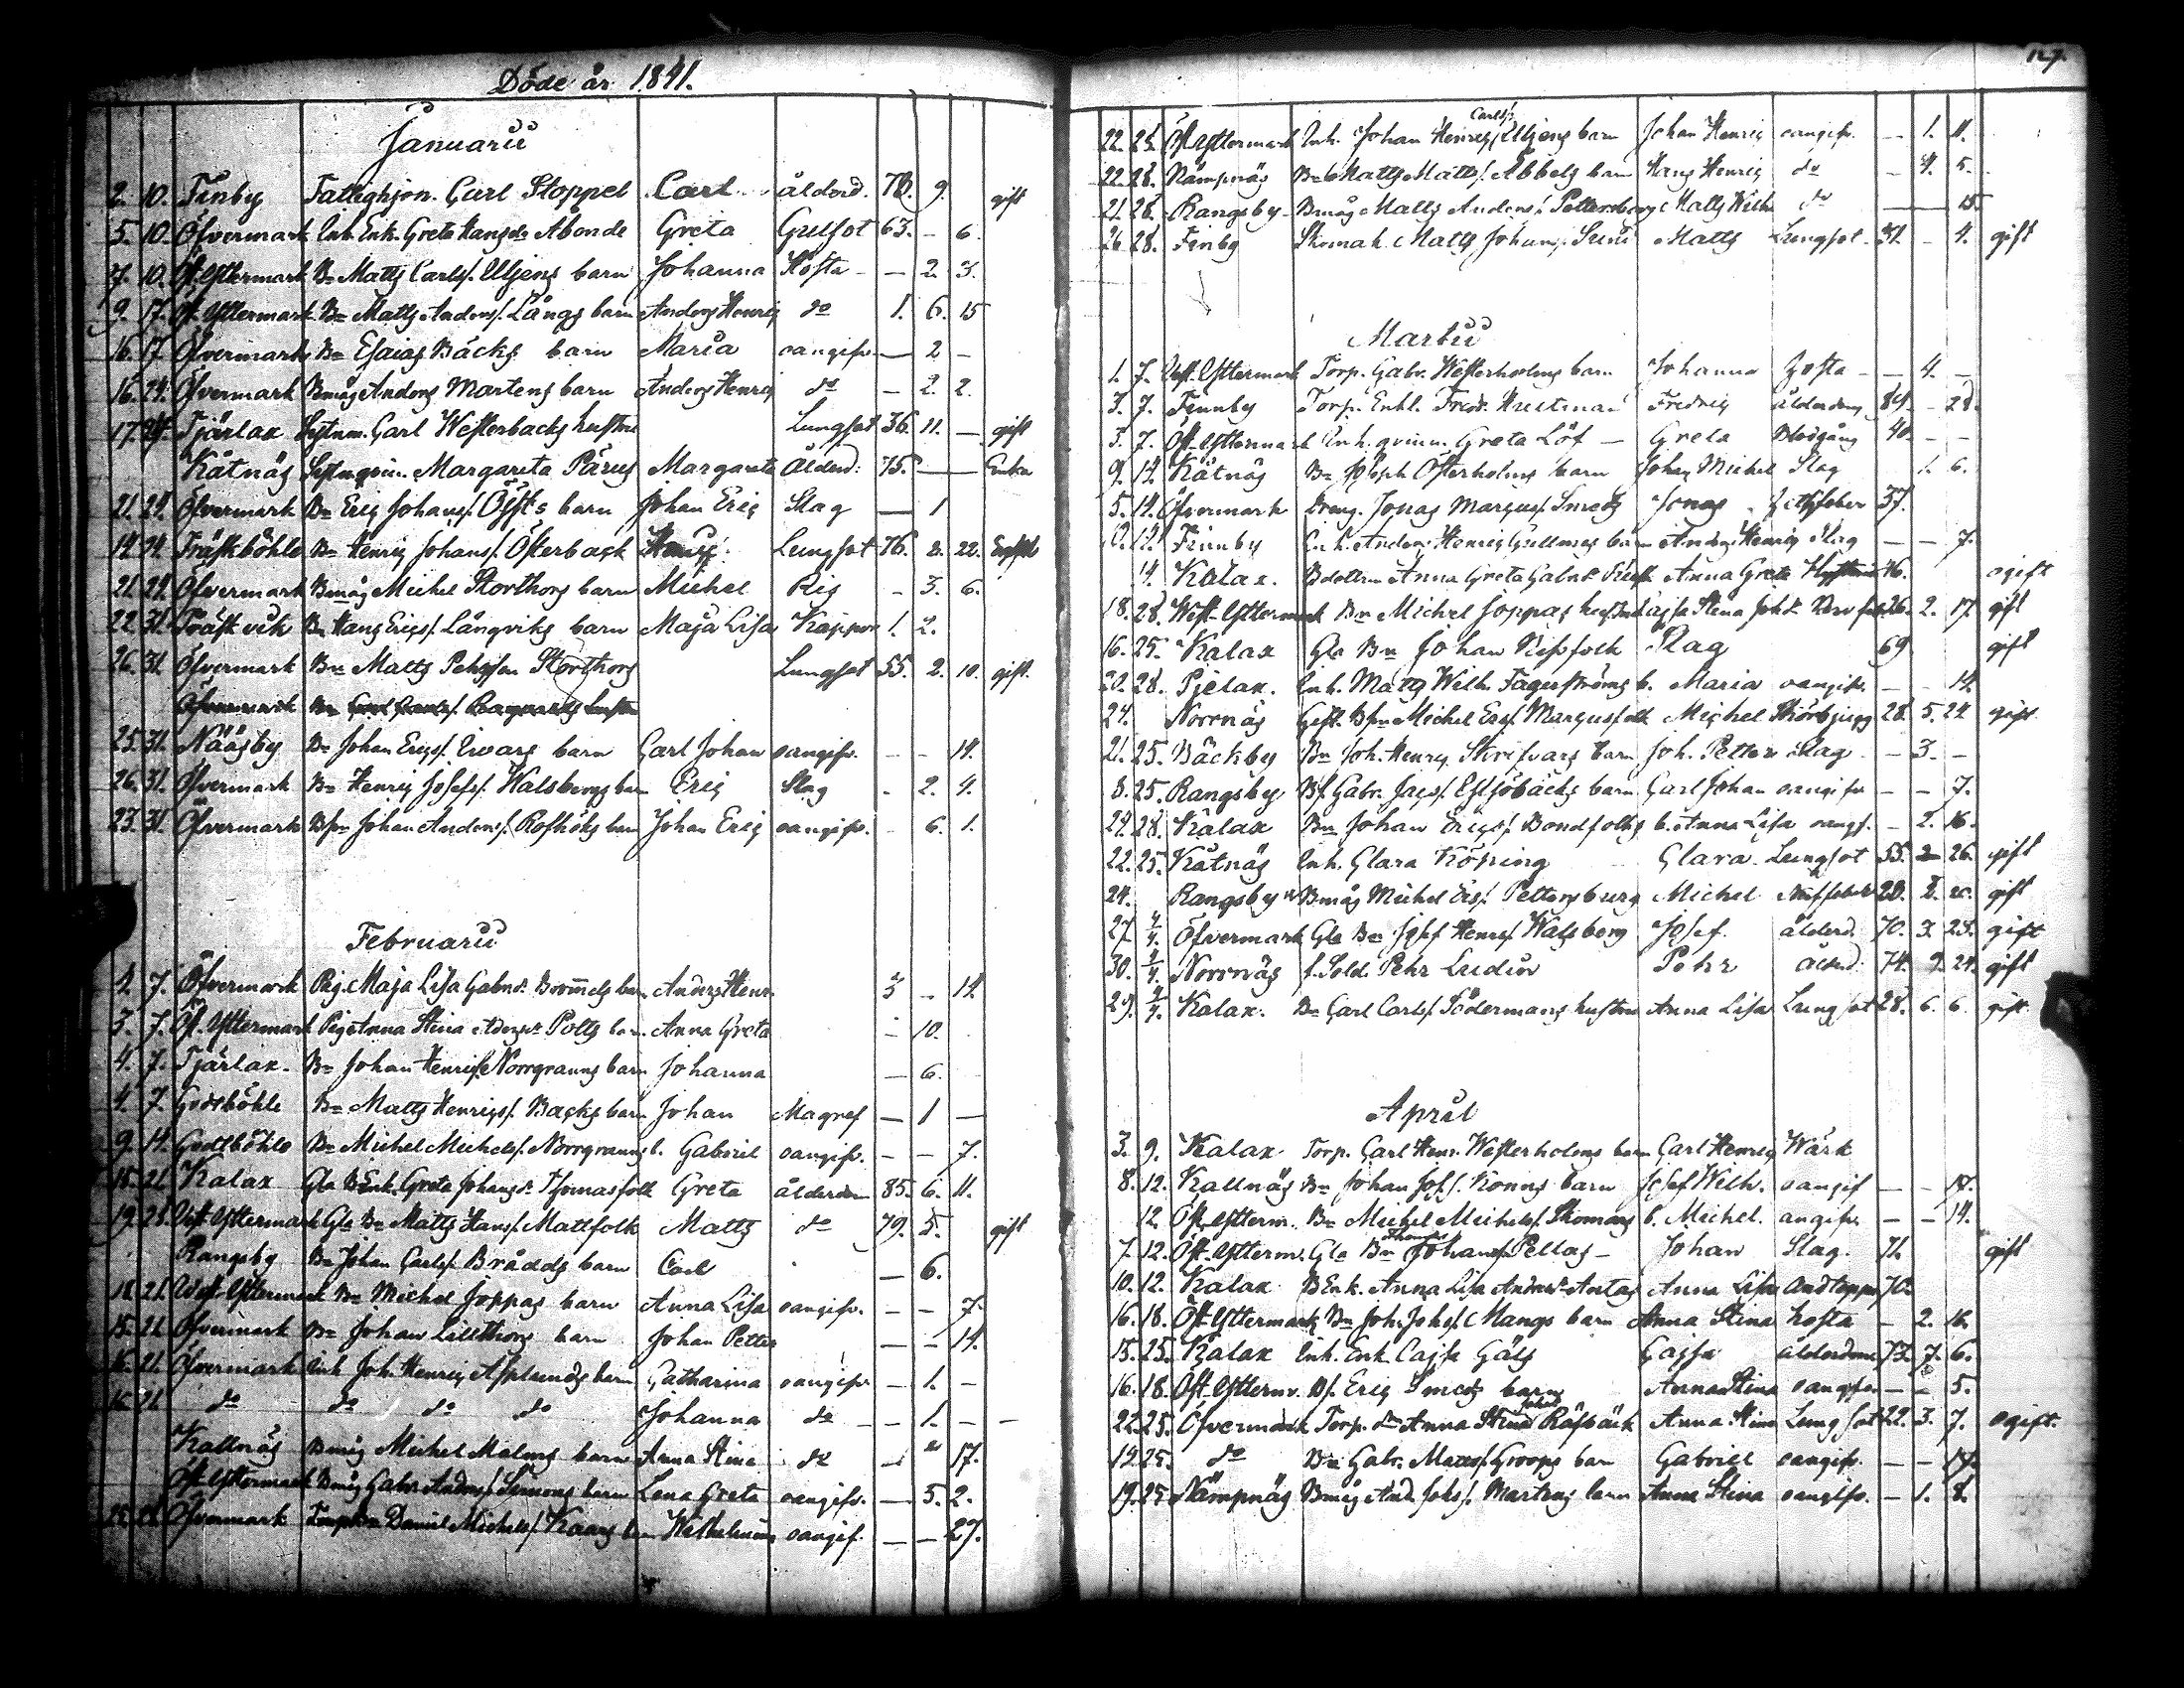 Döde år 1841.
Januarii
2. 10. Finby Fattighjon. Carl Stoppel Carl ålderd. 78. 9. gift
5. 10. Öfvermark Inh. Enk. Greta Hansdr Åbonde Greta Gulsot 63. - 6.
7. 10. Öst. Yttermark Bn Matts Carlss. Utjens barn Johanna Hosta - 2. 3.
9. 17. Öst. Yttermark Bn Matts Anderss. Långs barn Anders Henric do 1. 6. 15
16. 17. Öfvermark Bn Esaias Bäcks barn Maria oangifv. - 2 -
16. 24. Öfvermark Bmåg Anders Martens barn Anders Henric do - 2. 2.
17. 24. Tjärlax Carl Westerbacks hustru Lungsot 36. 11. - gift
Kåtnäs Margareta Pärus Margareta Ålderd: 75. - Enka
21. 24. Öfvermark Bn Eric Johanss. barn Johan Eric Slag - 1
14. 24. Träskböhle Bn Henric Johanss. Österback Henric Lungsot 76. 2. 22.
21. 24. Öfvermark Bmåg Michel Storthors barn Michel Ris - 3. 6.
22. 31. Träskvik Bn Hans Ericss. Långviks barn Maja Lisa Koppor 1. 2.
26. 31. Öfvermark Bn Matts Pehrsson Storthors Lungsot 55. 2. 10. gift.
Öfvermark Bn
25. 31. Nääsby Bn Johan Ericss. Ivars barn Carl Johan oangifv. - - 14.
26. 31. Öfvermark Bn Henric Josefss. Walsbergs barn Eric Slag - 2. 4.
23. 31. Öfvermark Bson Johan Anderss. Rofhöks barn Johan Eric oangifv. - 6. 1.
Februarii
4. 7. Öfvermark Pig. Maja Lisa Gabrsdr. barn Anders Henr. 3 - 14.
3. 7. Öst. Yttermark Pig Anna Stina Potts barn Anna Greta - 10.
4. 7. Tjärlax. Bn Johan Henricss. Norrgranns barn Johanna - 6.
4. 7. Gottböhle Bn Matts Henricss. Backs barn Johan Magref - 1 -
9. 14. Gottböhle Bn Michel Michelss. Norrgranns b. Gabriel oangifv. - - 7.
18. 21. Kalax Gla BEnk. Greta Johansdr Thomasfolk Greta ålderdom 85. 6. 11.
19. 28. Vest. Yttermark Gla Bn Matts Hanss. Mattfolk Matts do 79. 5. gift
Rangsby Bn Johan Carlss. Brädds barn Carl - 6.
18. 21. Vest. Yttermark Bn Michel Joppas barn Anna Lisa oangifv. - - 7.
15. 21. Öfvermark Bn Johan Lillthors barn Johan Petter - - 14.
16. 21. Öfvermark Inh Joh. Henric Asplunds barn Catharina oangifv - 1. -
16. 21. do do do do Johanna do - 1. - -
Kallnäs Bmåg Michel Malms barn Anna Stina do - " 17.
Öst. Yttermark Bmåg Gabr. Anderss. Simons barn Lena Greta oangifv. - 5. 2.
Öfvermark Daniel Michelss. Kaars barn Wilhelmina oangif. - - 27.
127.
Carlss.
22. 25. Öst. Yttermark Inh. Johan Henric Utjens barn Johan Henric oangifv. - 1. 11.
22. 28. Nämpnäs Bn Matts Mattss. Abbels barn Hans Henric do - 4. 5.
21. 28. Rangsby Bmåg Matts Anderss. Pettersborg Matts Wilh do - 15.
26. 28. Finby Skomak. Matts Johanss. Matts Lungsot. 31. - 4. gift
Martii
1. 7. Vest. Yttermark Torp. Gabr. Westerholms barn Johanna Hosta - 4. -
3. 7. Finnby Torp. Enkl. Fredr. Hultman Fredric ålderdom 84. - 28.
3. 7. Öst. Yttermark Inh. qvinn. Greta Löf - Greta Blodgång 40. - -
9. 14. Kåtnäs Bn Joseph Österholms barn Johan Michel Slag 1. 6.
5. 14. Öfvermark Dreng. Jonas Marcuss. Smeds Jonas 37.
12. Finnby Inh. Anders Henric Gullmes barn Anders Henric Slag - - 7.
14. Kalax. Bdottren Anna Greta Gabrsdr Anna Greta 46. ogift
18. 28. West. Yttermark Bn Michel Joppas hustru Cajsa Stina Johdr. 26. 2. 17. gift
16. 25. Kalax Gla Bn Johan Nissfolk Slag 69 gift
20. 28. Pjelax. Inh. Matts Wilh. Fagerströms b. Maria oangifv. - - 14.
24. Norrnäs Gift. Bson Michel Ericss. Marcusfolk Michel Skörbjugg 28. 5. 24 gift
21. 25. Bäckby Bn Joh. Henric Skrifvars barn Joh. Petter Slag - 3. -
8. 25. Rangsby Bs. Gabr. Jacss. Estjöbäcks barn Carl Johan oangifv - - 7.
24. 28. Kalax Bn Johan Ericss. Bondfolks b. Anna Lisa oangf. - 2. 16.
22. 25. Kåtnäs Inh. Clara Köping Clara Lungsot 55. 2 26. gift
24. Rangsby Bmåg Michel Erss. Pettersburg Michel 28. 8. 20. gift
27. 4/4. Öfvermark Gla Bn Josef Henrss. Walsberg Josef. ålderd. 70. 3. 23. gift
30. 4/4. Norrnäs f. Sold. Pehr Ludin Pehr ålderd. 74. 9. 24. gift
29. 4/4. Kalax. Bn Carl Carlss. Södermans hustru Anna Lisa Lungsot 28. 6. 6 gift
April
3. 9. Kalax Torp. Carl Henr. Westerholms barn Carl Henric Wärk
8. 12. Kallnäs Bn Johan Joss. Konns barn Josef Wilh. oangif - - 14.
12. Öst. Ytterm. Bn Michel Michelss. Skomars b. Michel. angifv. - - 14.
7. 12. Öst. Ytterm. Gla Bn Johan Pellas - Johan Slag. 71. gift
10. 12. Kalax BEnk. Anna Lisa Andersdr Antas Anna Lisa Andtäppa 70.
16. 18. Öst. Yttermark Bn Joh. Johss. Mangs barn Anna Stina hosta - 2. 16.
15. 25. Kalax Inh. Enk. Cajsa Gäls Cajsa ålderdom 73. 7. 6.
16. 18. Öst. Ytterm. Bs. Eric Smeds barn Anna Stina oangifv. - - 5.
22. 25. Öfvermark Torp. dr Anna Stina Räfbäck Anna Stina Lungsot 22. 3. 7. ogift.
19. 25. do Bn Gabr. Matss. Groops barn Gabriel oangifv. - - 14.
19. 25. Nämpnäs Bmåg And. Johss. Martens barn Anna Stina oangifv. - 1. 8.